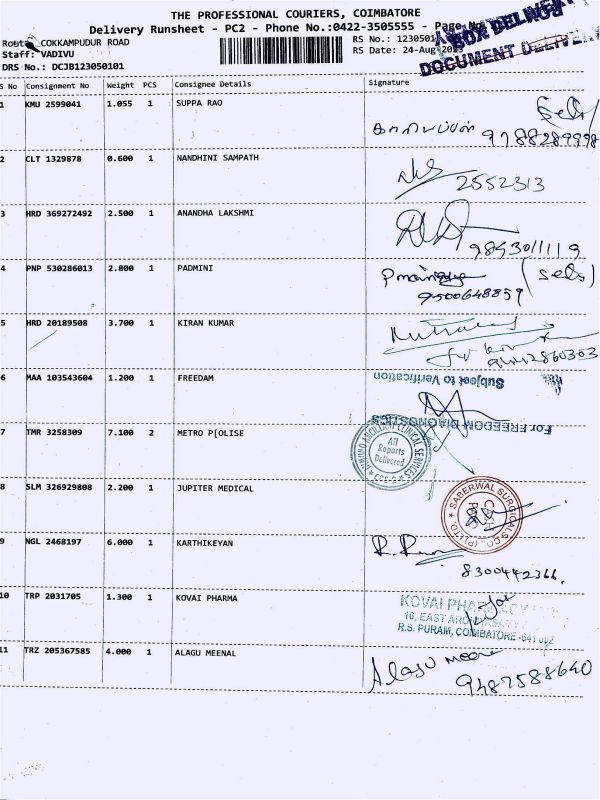 THE PROFESSIONAL COURIERS, COIMBATORE
Delivery Runsheet - PC2 - Phone No.:0422-3505555 - Page
Route: COKKAMPUDUR ROAD
RS No.: 1230501
Staff: VADIVU
RS Date: 24-Aug-
DRS No.: DCJB123050101
BOX DELIVERY
DOCUMENT DELIVERY
S No Consignment No Weight PCS Consignee Details Signature
1 KMU 2599041 1.055 1 SUPPA RAO
9788289998
2 CLT 1329878 0.600 1 NANDHINI SAMPATH
2552313
3 HRD 369272492 2.500 1 ANANDHA LAKSHMI
4 PNP 530286013 2.800 1 PADMINI
(sels)
9500648859
5 HRD 20189508 3.700 1 KIRAN KUMAR
6 MAA 103543604 1.200 1 FREEDAM
Subject to Verification
For FREEDOM DIAGNOSTICS
7 TMR 3258309 7.100 2 METRO P[OLISE
ANCILLARY CLINICAL SERVICES
All Reports Delivered
CBE-2
8 SLM 326929808 2.200 1 JUPITER MEDICAL
SABERWAL SURGICALS CO. (P) LTD.
9 NGL 2468197 6.000 1 KARTHIKEYAN
8300442366.
10 TRP 2031705 1.300 1 KOVAI PHARMA
KOVAI PHARMACY
16, EAST
R.S. PURAM, COIMBATORE -641 002
11 TRZ 205367585 4.000 1 ALAGU MEENAL
Alagu meena
9487588640